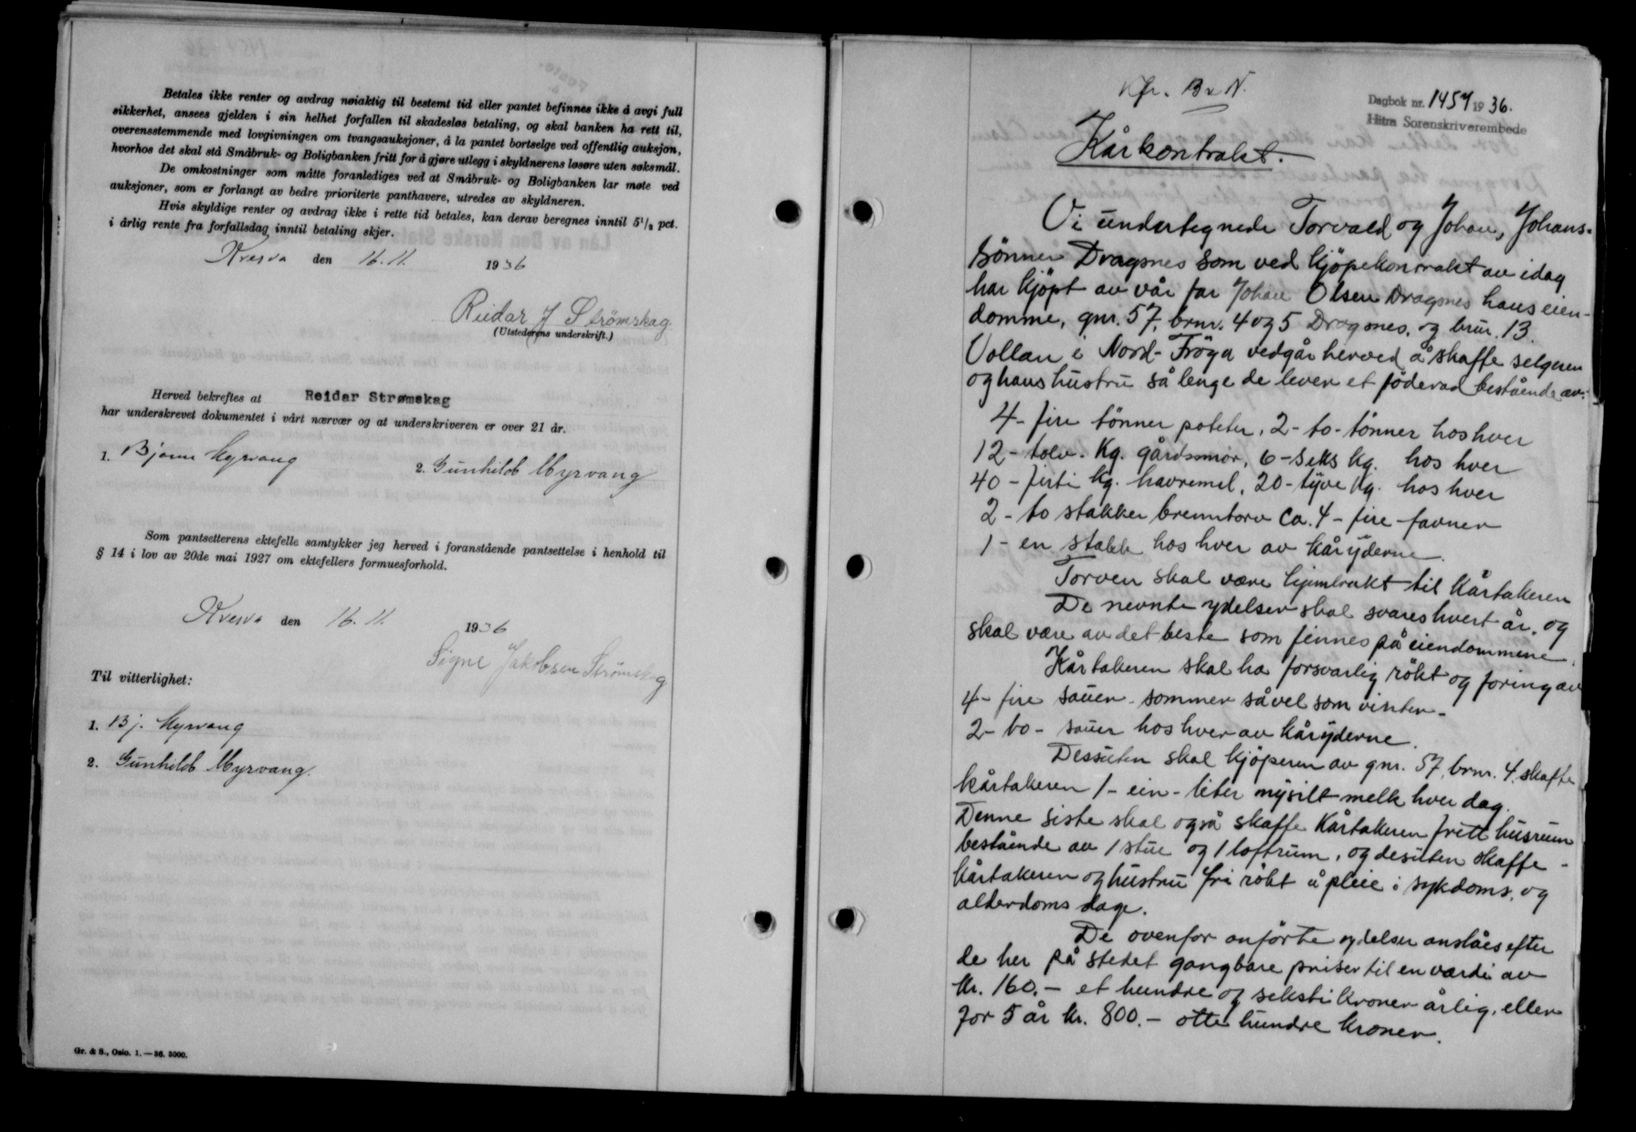 Betales ikke renter og avdrag nøiaktig til bestemt tid eller pantet befinnes ikke å avgi full
sikkerhet, ansees gjelden i sin helhet forfallen til skadesløs betaling, og skal banken ha rett til,
overensstemmende med lovgivningen om tvangsauksjoner, å la pantet bortselge ved offentlig auksjon,
hvorhos det skal stå Småbruk- og Boligbanken fritt for å gjøre utlegg i skyldnerens løsøre uten søksmål.
De omkostninger som måtte foranlediges ved at Småbruk- og Boligbanken lar møte ved
auksjoner, som er forlangt av bedre prioriterte panthavere, utredes av skyldneren.
Hvis skyldige renter og avdrag ikke i rette tid betales, kan derav beregnes inntil 5½ pct.
i årlig rente fra forfallsdag inntil betaling skjer.
Kverva den 16. 11. 1936
Reidar J Strømskag
(Utstederens underskrift.)
Herved bekreftes at Reidar Strømskag
har underskrevet dokumentet i vårt nærvær og at underskriveren er over 21 år.
1. Bjarne Myrvang 2. Gunhild Myrvang
Som pantsetterens ektefelle samtykker jeg herved i foranstående pantsettelse i henhold til
§ 14 i lov av 20de mai 1927 om ektefellers formuesforhold.
Kverva den 16. 11. 1936
Signe Jakobsen Strømskag
Til vitterlighet:
1. Bj. Myrvang
2. Gunhild Myrvang.
Gr. & S., Oslo. 1.—36. 5000.
Dagbok nr. 1457 1936.
Hitra Sorenskriverembede
Kårkontrakt.
Vi undertegnede Torvald og Johan, Johans-
sønner Dragsnes som ved kjöpekontrakt av idag
har kjöpt av vår far Johan Olsen Dragsnes hans eien-
domme, gnr. 57, brnr. 4 og 5 Dragsnes, og brnr. 13
Vollan i Nord-Fröya vedgår herved å skaffe selgeren
og hans hustru så lenge de lever et föderad bestående av:
4 - fire tönner poteter, 2 - to - tönner hos hver
12 - tolv - kg. gårdssmör, 6 - seks kg. hos hver
40 - firti kg. havremel, 20 - tyve kg. hos hver
2 - to stakker brenntorv ca. 4 - fire - favner
1 - en stakk hos hver av kåryderne.
Torven skal være hjembrakt til kårtakeren
De nevnte ydelser skal svares hvert år, og
skal være av det beste som finnes på eiendommene.
Kårtakeren skal ha forsvarlig rökt og foring av
4 - fire sauer - sommer såvel som vinter -
2 - to - sauer hos hver av kåryderne.
Dessuten skal kjöperen av gnr. 57, brnr. 4, skaffe
kårtakeren 1 - ein - liter nysilt melk hver dag.
Denne siste skal også skaffe kårtakeren fritt husrum
bestående av 1 stue og 1 loftrum, og desuten skaffe -
kårtakeren og hustru fri rökt å pleie i sykdoms. og
alderdoms dage.
De ovenfor anförte ydelser anslåes efter
de her på stedet gangbare priser til en verdi av
kr. 160.- et hundre og seksti kroner årlig, eller
for 5 år kr. 800.- otte hundre kroner.